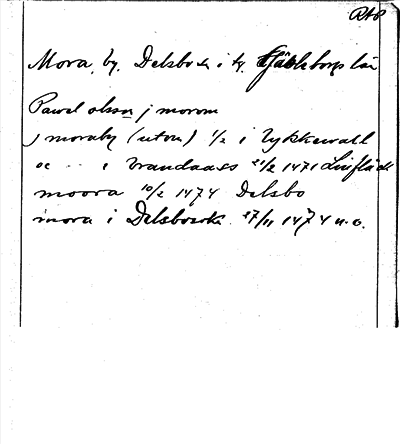 RAP
Mora, by, Delsbo s:n i kr Gävleborgs län
Pawel olsson j morom
j moraby (utom) 1/2 i lykkewall
oc i 21/2 1471
moora 10/2 1474 Delsbo
mora i Delsbosok 27/11 1474 n.o.